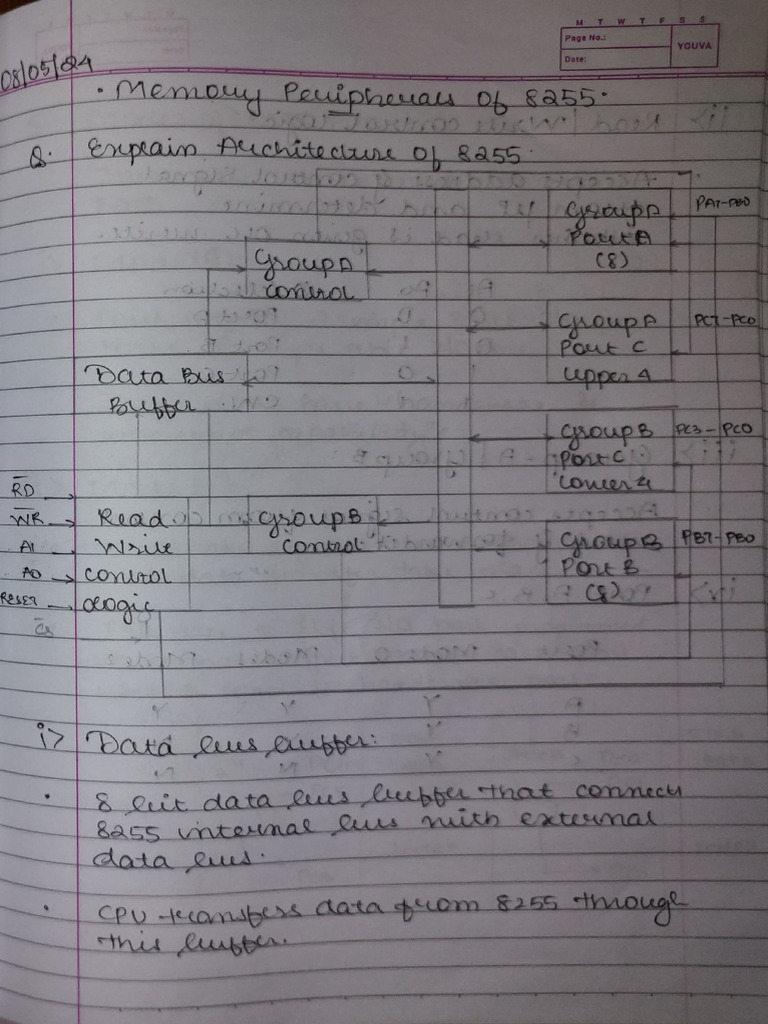 M T W T F S S
Page No.:
YOUVA
Date:
08/05/24
• Memory Peripherals Of 8255.
Q. Explain Architecture Of 8255.
Group A PA7-PA0
Port A
(8)
Group A
control
Group A PC7-PC0
Port C
Upper 4
Data Bus
Buffer
Group B PC3-PC0
Port C
Lower 4
RD
WR Read Group B
A1 Write Control
A0 control
RESET Logic
CS
Group B PB7-PB0
Port B
(8)
i> Data bus buffer:
• 8 bit data bus buffer that connects
8255 internal bus with external
data bus.
• CPU transfers data from 8255 through
this buffer.